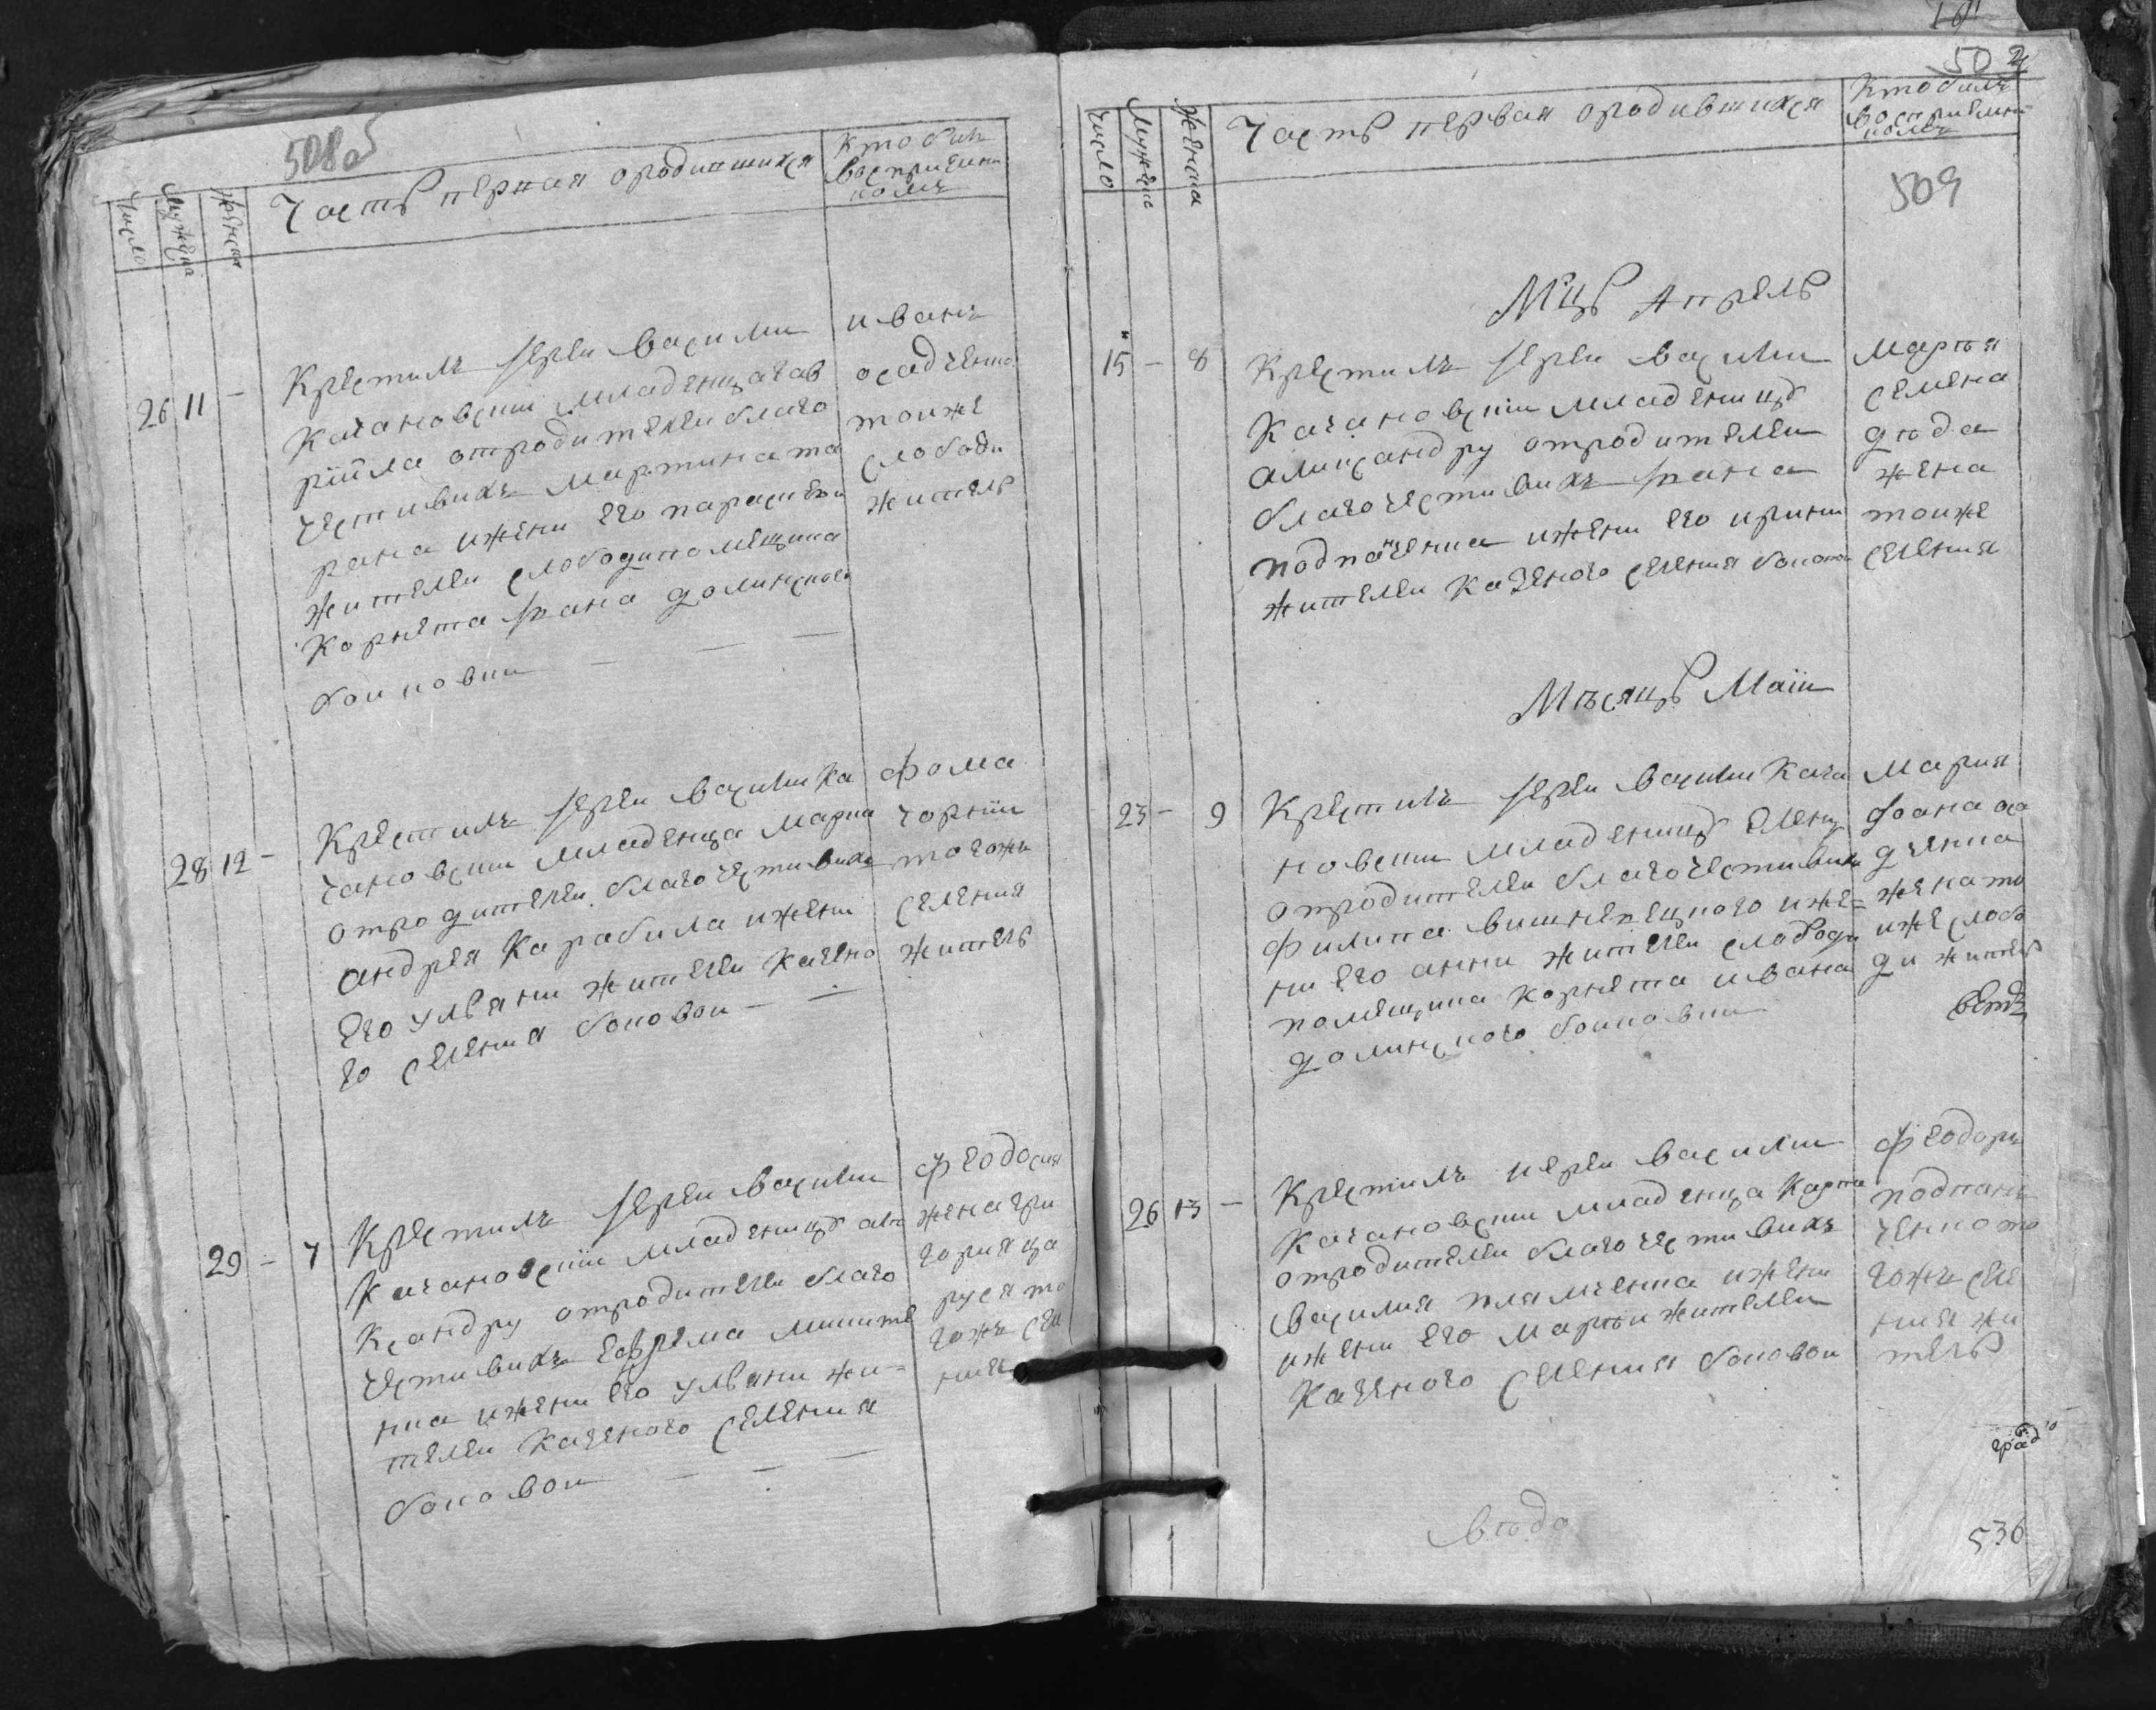 508об
Число
Мужеска
Женска
Часть первая ородившихся
Кто бил
восприемни
комъ
26 11 –
Крестилъ іерей василий
Качановский младенца гав
рiила отродителей благо
честивихъ мартина та
рана ижени его параскеви
жителей слободи помещика
Корнета івана долинского
бойковки
иванъ
осадченко
тоиже
слободи
житель
28 12 –
Крестилъ іерей василий ка
чановский младенца марка
отродителей благочестивихъ
андрея Карабила ижени
его ульяни жителей казено
го селения боковой
фома
чорний
тогожъ
селения
житель
29 – 7
Крестилъ іерей василий
Качановский младеницъ але
ксандру отродителей благо
честивихъ ефрема миките
нка ижени его ульяни жи=
телей казеного селения
боковой
феодосия
жена гри
гория ца
руся то
гожъ селе
ния
502
Число
Мужеска
Женска
Часть первая ородившихся
Кто билъ
восприемни
комъ
509
Мцъ Апрель
15 – 8
Крестилъ іерей василий
Качановский младеницъ
аликсандру отродителей
благочестивихъ івана
подпаченка ижени его ирини
жителей казеного селения боковой
марфя
семена
дюда
жена
тоиже
селения
Месяцъ Маiй
23 – 9
Крестилъ іерей василий Кача
новский младеницъ елену
отродителей благочестивихъ
филипа вишневецкого иже=
ни его анни жителей слободи
помещика корнета ивана
долинского бойковки
мария
ивана оса
дченка
жена то
иже слобо
ди житель
26 13 –
Крестилъ иерей василий
Качановский младенца Карпа
отродителей благочестивихъ
василия пляченка ижени
ижени его марфи жителей
казеного селения боковой
феодоръ
подпань
ченко то
гожъ селе
ния жи
тель
536